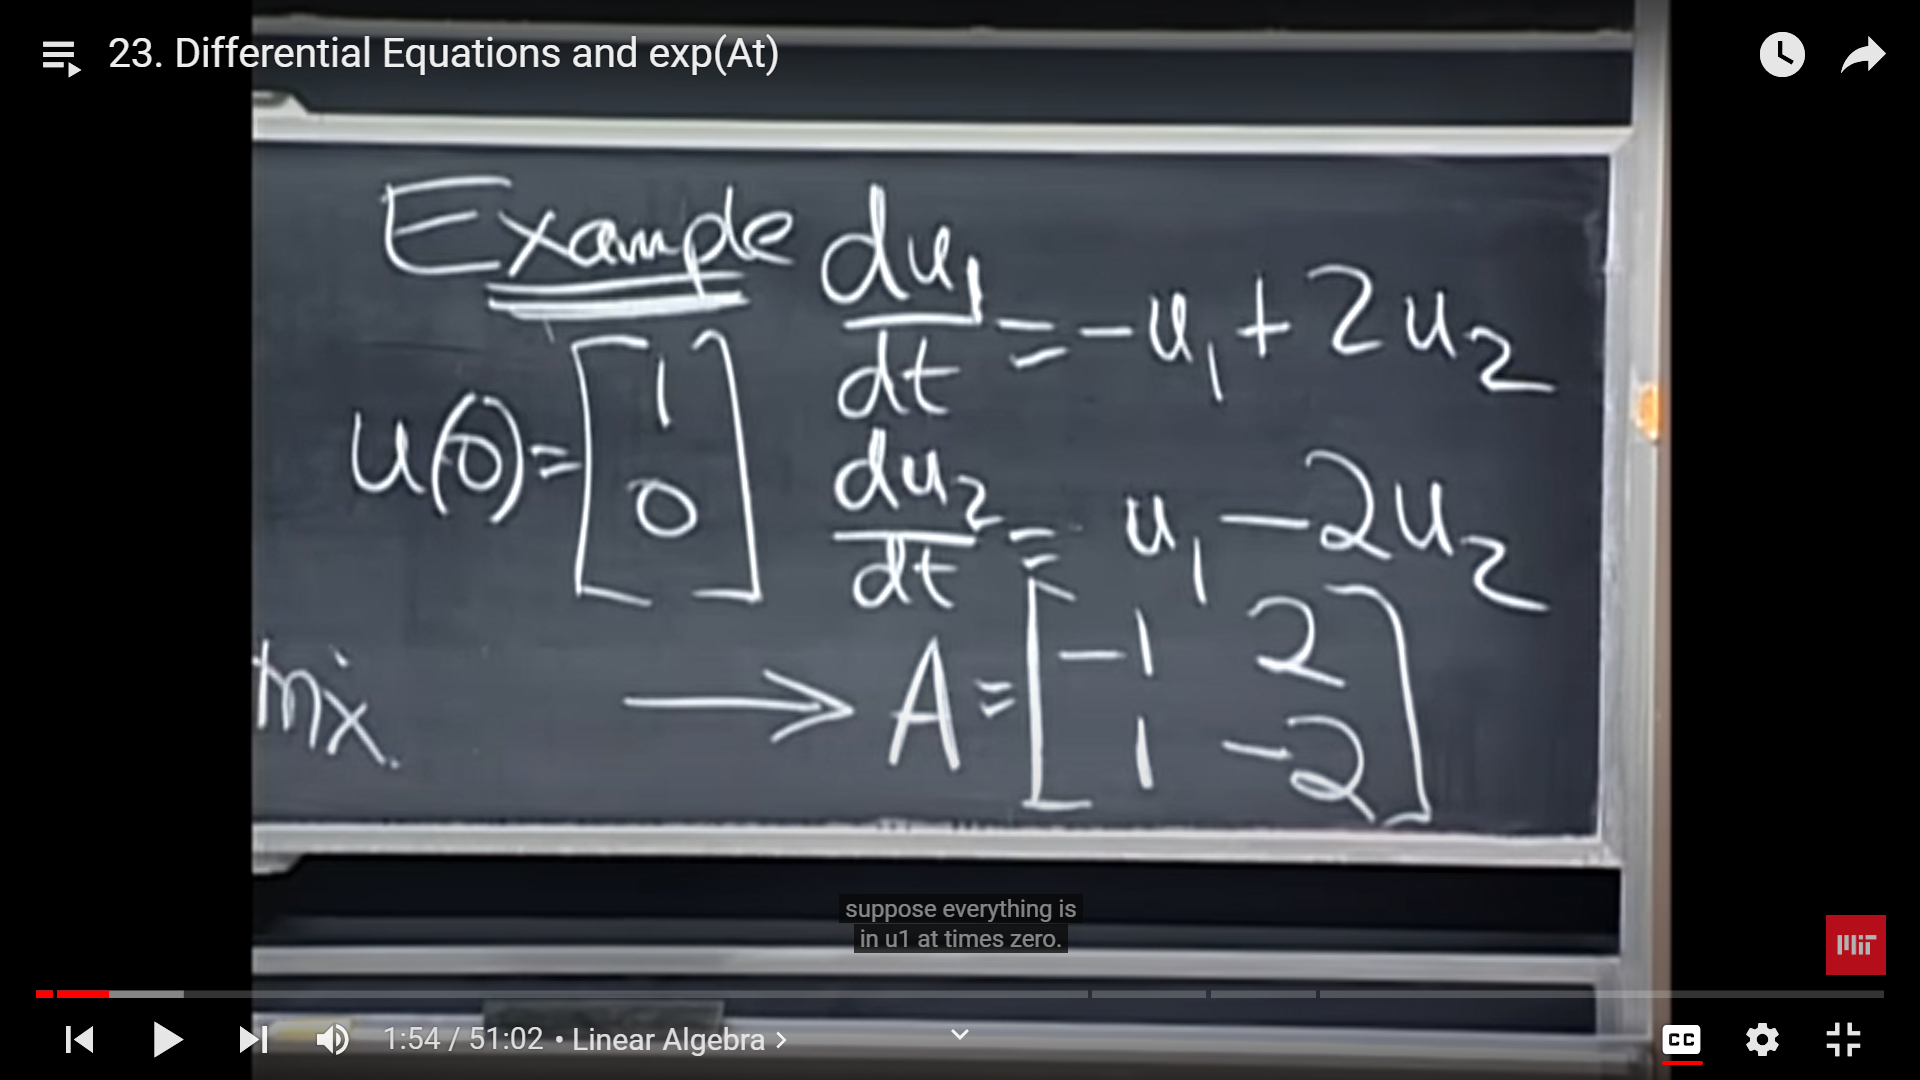 23. Differential Equations and exp(At)
Example
du₁/dt = -u₁ + 2u₂
u(0) = [1 0]
du₂/dt = u₁ - 2u₂
→ A = [-1 2
1 -2]
suppose everything is
in u1 at times zero.
MIT
1:54 / 51:02 • Linear Algebra >
CC